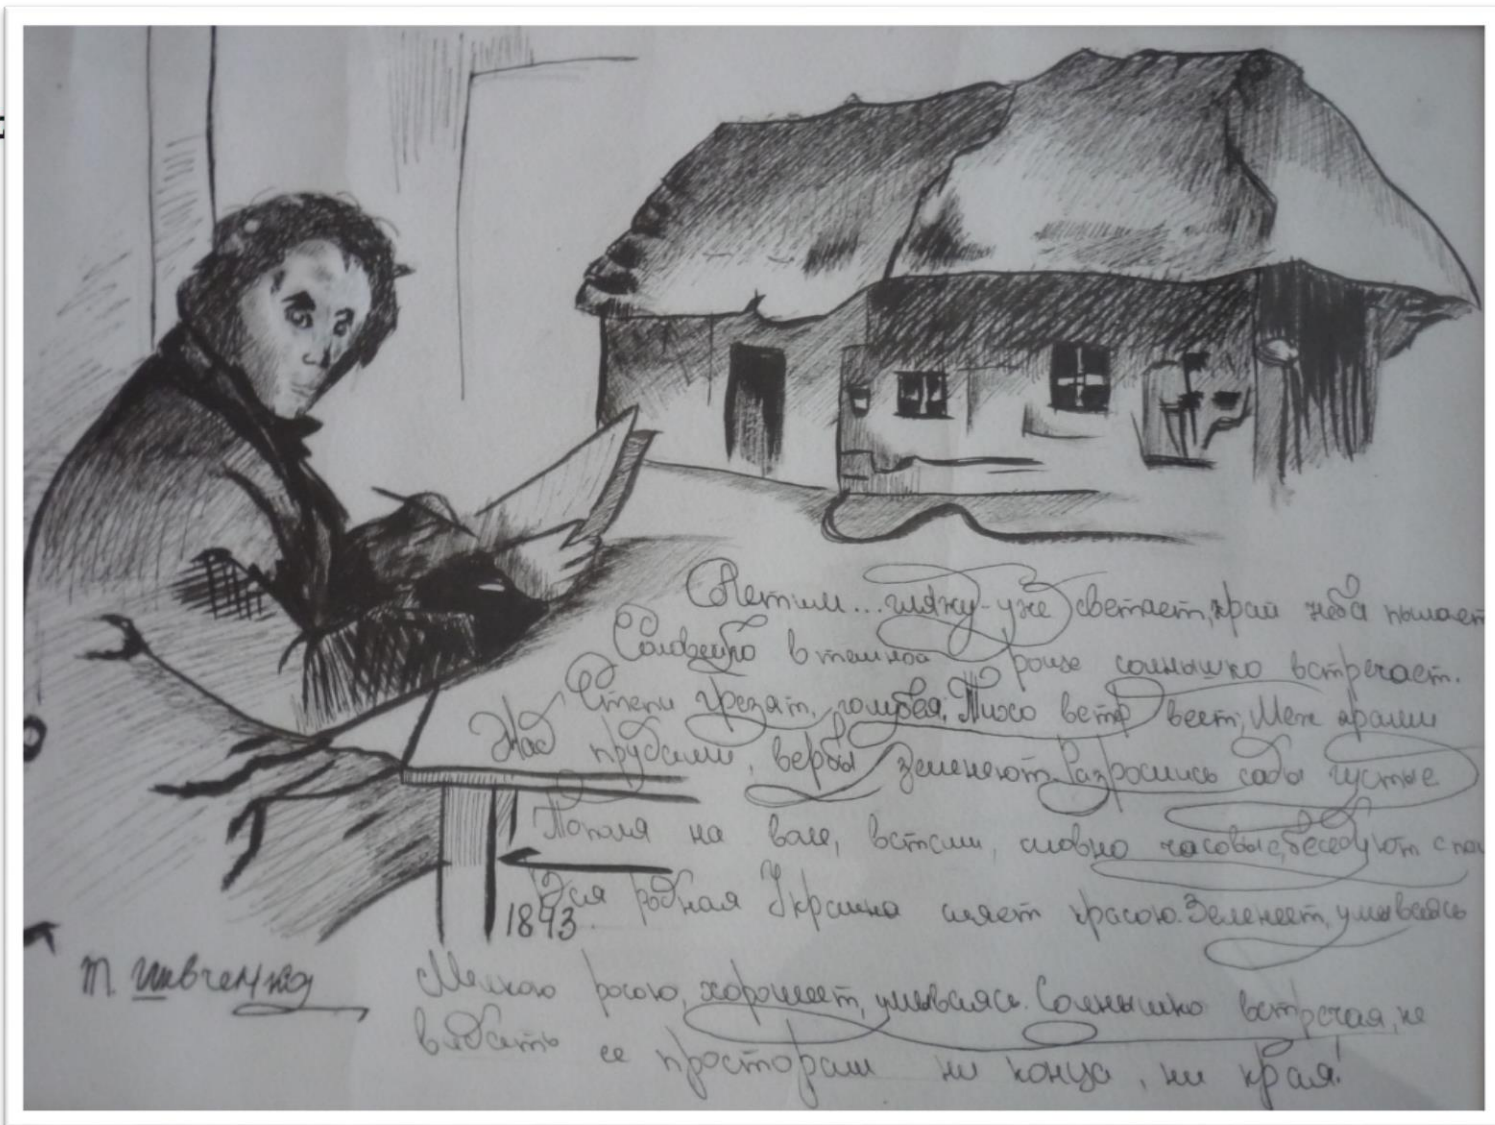 Летим... гляжу - уже светает, край неба пылает
Соловейко в темной роще солнышко встречает.
Степи грезят, голубея, Тихо ветр веет, Меж ярами
Над прудами, вербы зеленеют Разрослись сады густые
Тополя на воле, встали, словно часовые, беседуют с по
Вся родная Украина сияет красою. Зеленеет, умываясь
1843.
Т. Шевченко
Мелкою росою, хорошеет, умываясь. Солнышко встречая, не
видать ее просторам ни конца, ни края!